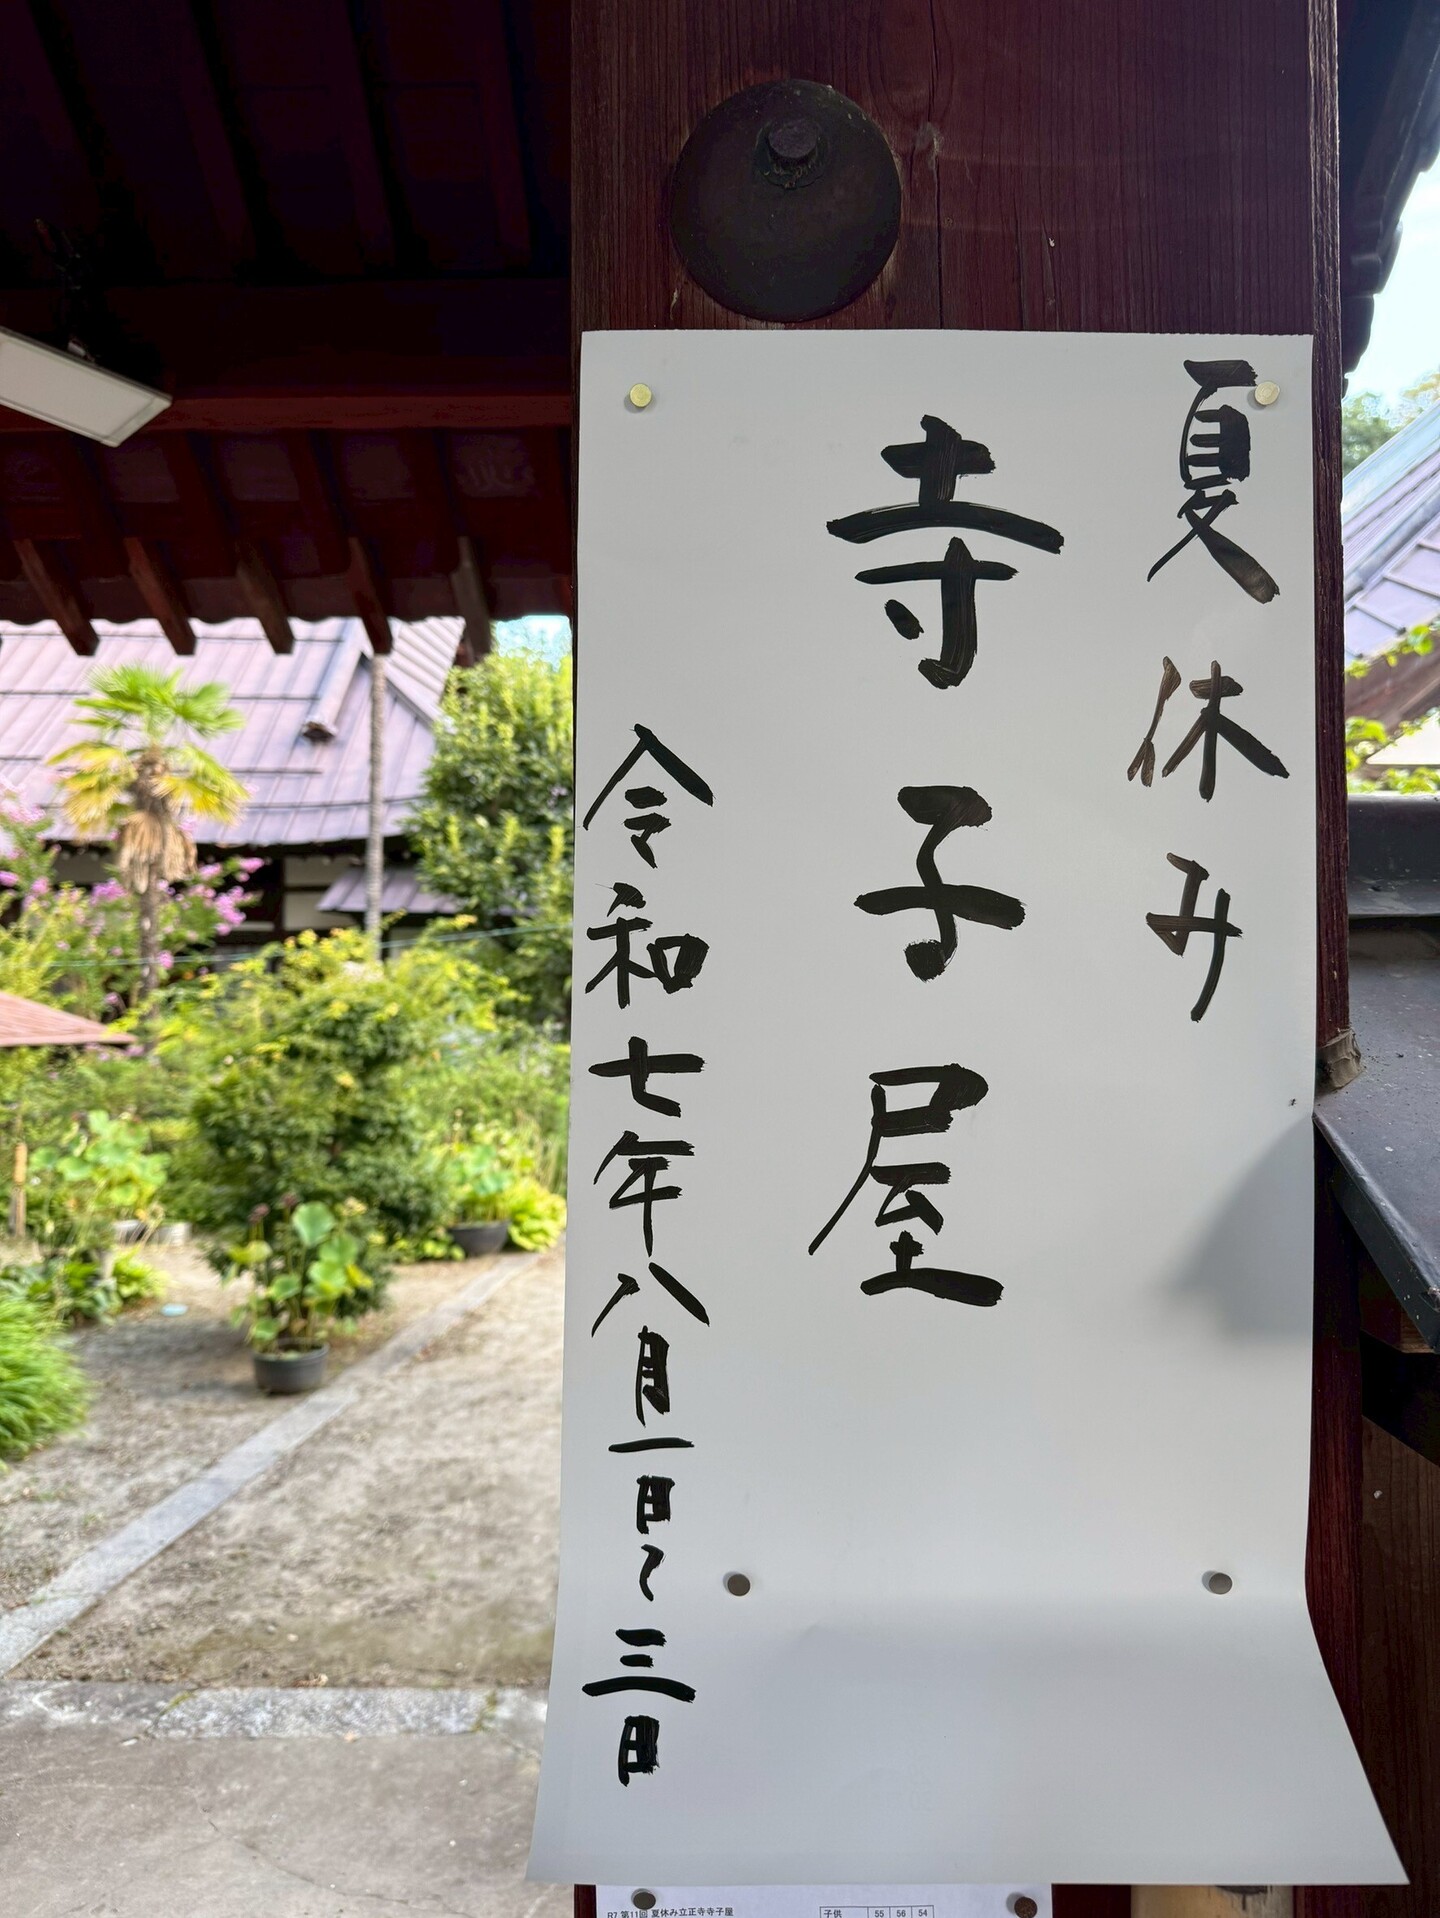 夏休み
寺子屋
令和七年八月一日〜三日
R7 第11回 夏休み立正寺寺子屋
子供 55 56 54